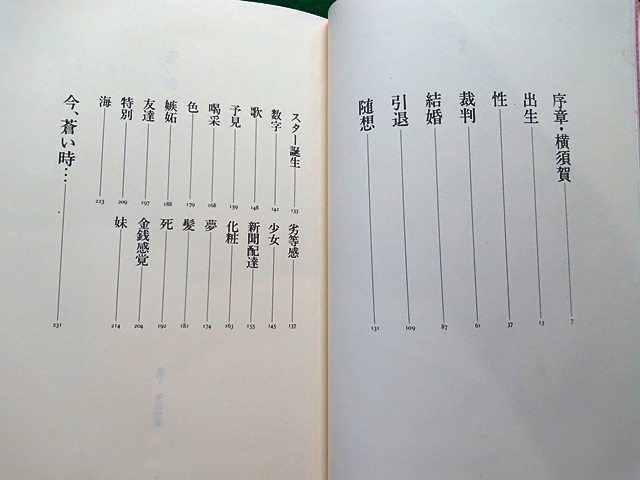 序章・横須賀 7
出生 13
性 37
裁判 61
結婚 87
引退 109
随想 131
スター誕生 133
劣等感 137
数字 142
少女 145
歌 148
新聞配達 155
予見 159
化粧 163
喝采 168
夢 174
色 179
髪 181
嫉妬 188
死 192
友達 197
金銭感覚 204
特別 209
妹 214
海 223
今、蒼い時… 231